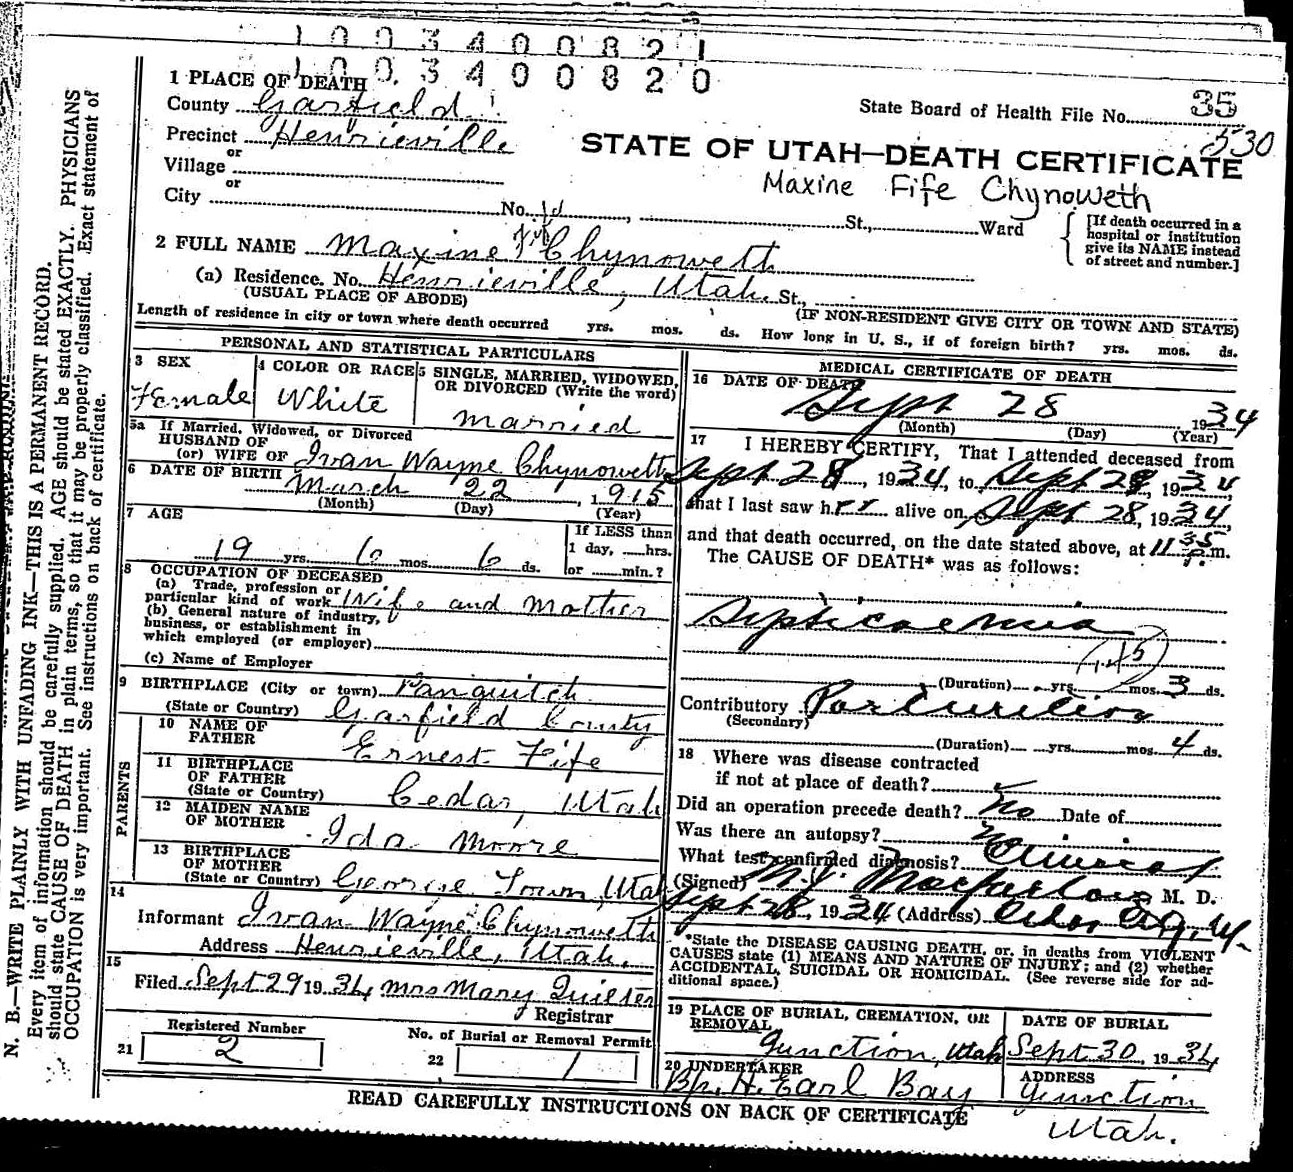 1 0 0 3 4 0 0 8 2 1
1 0 0 3 4 0 0 8 2 0
1 PLACE OF DEATH
County Garfield
State Board of Health File No. 35
530
Precinct Henrieville
or
STATE OF UTAH—DEATH CERTIFICATE
Village
or
Maxine Fife Chynoweth
City No. St., Ward
[If death occurred in a hospital or institution give its NAME instead of street and number.]
2 FULL NAME Maxine Fife Chynoweth
(a) Residence. No. Henrieville, Utah. St.,
(USUAL PLACE OF ABODE) (IF NON-RESIDENT GIVE CITY OR TOWN AND STATE)
Length of residence in city or town where death occurred yrs. mos. ds. How long in U. S., if of foreign birth? yrs. mos. ds.
PERSONAL AND STATISTICAL PARTICULARS
3 SEX
Female
4 COLOR OR RACE
White
5 SINGLE, MARRIED, WIDOWED, OR DIVORCED (Write the word)
married
5a If Married, Widowed, or Divorced
HUSBAND OF
(or) WIFE OF Ivan Wayne Chynoweth
6 DATE OF BIRTH March 22, 1915
(Month) (Day) (Year)
7 AGE
19 yrs. 6 mos. 6 ds.
If LESS than
1 day, hrs.
or min.?
8 OCCUPATION OF DECEASED
(a) Trade, profession or
particular kind of work Wife and Mother
(b) General nature of industry,
business, or establishment in
which employed (or employer)
(c) Name of Employer
9 BIRTHPLACE (City or town) Panguitch
(State or Country) Garfield County
PARENTS
10 NAME OF FATHER Ernest Fife
11 BIRTHPLACE OF FATHER
(State or Country) Cedar, Utah
12 MAIDEN NAME OF MOTHER Ida Moore
13 BIRTHPLACE OF MOTHER
(State or Country) George Town, Utah
14
Informant Ivan Wayne Chynoweth
Address Henrieville, Utah.
15
Filed Sept 29 1934 Mrs Mary Quilter
Registrar
21 Registered Number
2
22 No. of Burial or Removal Permit
1
MEDICAL CERTIFICATE OF DEATH
16 DATE OF DEATH
Sept 28 1934
(Month) (Day) (Year)
17 I HEREBY CERTIFY, That I attended deceased from
Sept 28, 1934, to Sept 28, 1934,
that I last saw her alive on Sept 28, 1934,
and that death occurred, on the date stated above, at 11 35 P.m.
The CAUSE OF DEATH* was as follows:
Septicaemia
145
(Duration) yrs. mos. 3 ds.
Contributory Parturition
(Secondary)
(Duration) yrs. mos. 4 ds.
18 Where was disease contracted
if not at place of death?
Did an operation precede death? No Date of
Was there an autopsy? No
What test confirmed diagnosis? Clinical
(Signed) M. J. Macfarlane M. D.
Sept 28, 1934 (Address) Cedar City, U.
*State the DISEASE CAUSING DEATH, or, in deaths from VIOLENT
CAUSES state (1) MEANS AND NATURE OF INJURY; and (2) whether
ACCIDENTAL, SUICIDAL OR HOMICIDAL. (See reverse side for ad-
ditional space.)
19 PLACE OF BURIAL, CREMATION, OR REMOVAL
Junction, Utah
DATE OF BURIAL
Sept 30, 1934
20 UNDERTAKER
Bp. H. Earl Bay
ADDRESS
Junction
Utah.
READ CAREFULLY INSTRUCTIONS ON BACK OF CERTIFICATE
N. B.—WRITE PLAINLY WITH UNFADING INK—THIS IS A PERMANENT RECORD.
Every item of information should be carefully supplied. AGE should be stated EXACTLY. PHYSICIANS
should state CAUSE OF DEATH in plain terms, so that it may be properly classified. Exact statement of
OCCUPATION is very important. See instructions on back of certificate.